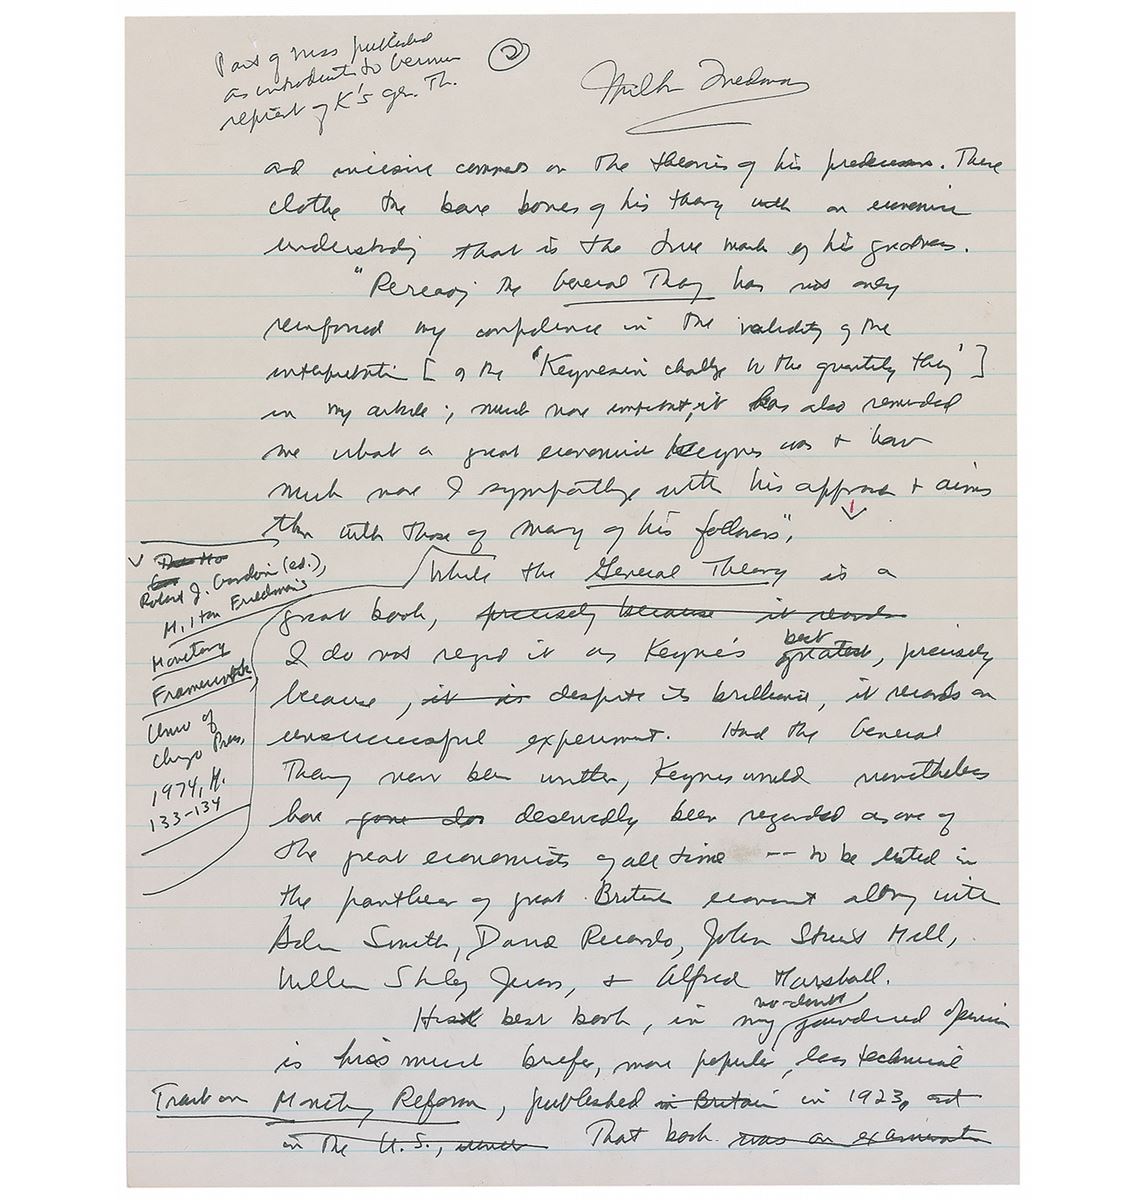 Part of mss published
as introduction to German
reprint of K's gen. Th.
2
Milton Friedman
and incisive comments on the theories of his predecessors. These
clothe the bare bones of his theory with an economic
understanding that is the true mark of his greatness.
"Rereading the General Theory has not only
reinforced my confidence in the validity of the
interpretation [of the 'Keynesian challenge to the quantity theory']
in my article; much more important, it has also reminded
me what a great economist Keynes was & how
much more I sympathize with his approach & aims
than with those of many of his followers".
Robert J. Gordon (ed.),
Milton Friedman's
Monetary
Framework,
Univ of
Chicago Press,
1974, pp.
133-134
While the General Theory is a
great book, precisely because it records
I do not regard it as Keynes's greatest best, precisely
because, it is despite its brilliance, it records an
unsuccessful experiment. Had the General
Theory never been written, Keynes would nonetheless
have deservedly been regarded as one of
the great economists of all time -- to be listed in
the pantheon of great British economists along with
Adam Smith, David Ricardo, John Stuart Mill,
William Stanley Jevons, & Alfred Marshall.
His best book, in my no-doubt jaundiced opinion
is his much briefer, more popular, less technical
Tract on Monetary Reform, published in Britain in 1923, and
in the U.S., That book was an examination